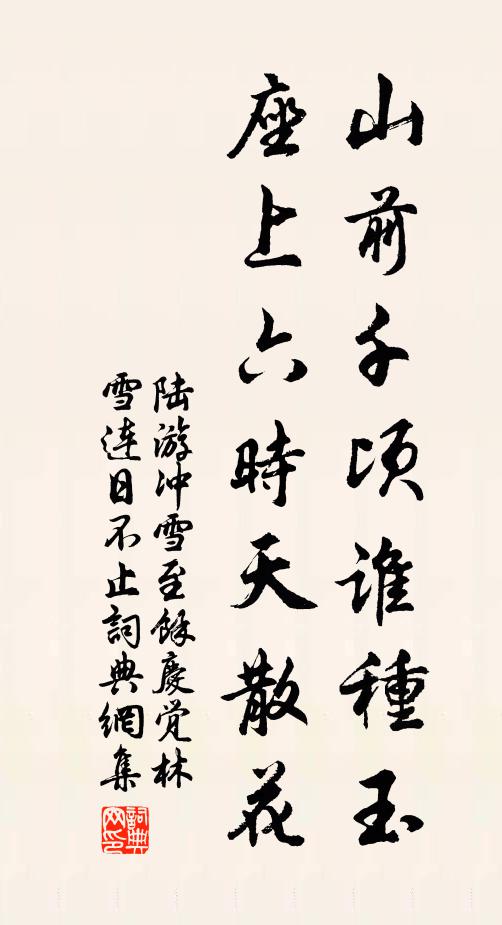 山前千頃誰種玉
座上六時天散花
陆游冲雪至餘慶觉林
雪連日不止詞典網集
詞典網印